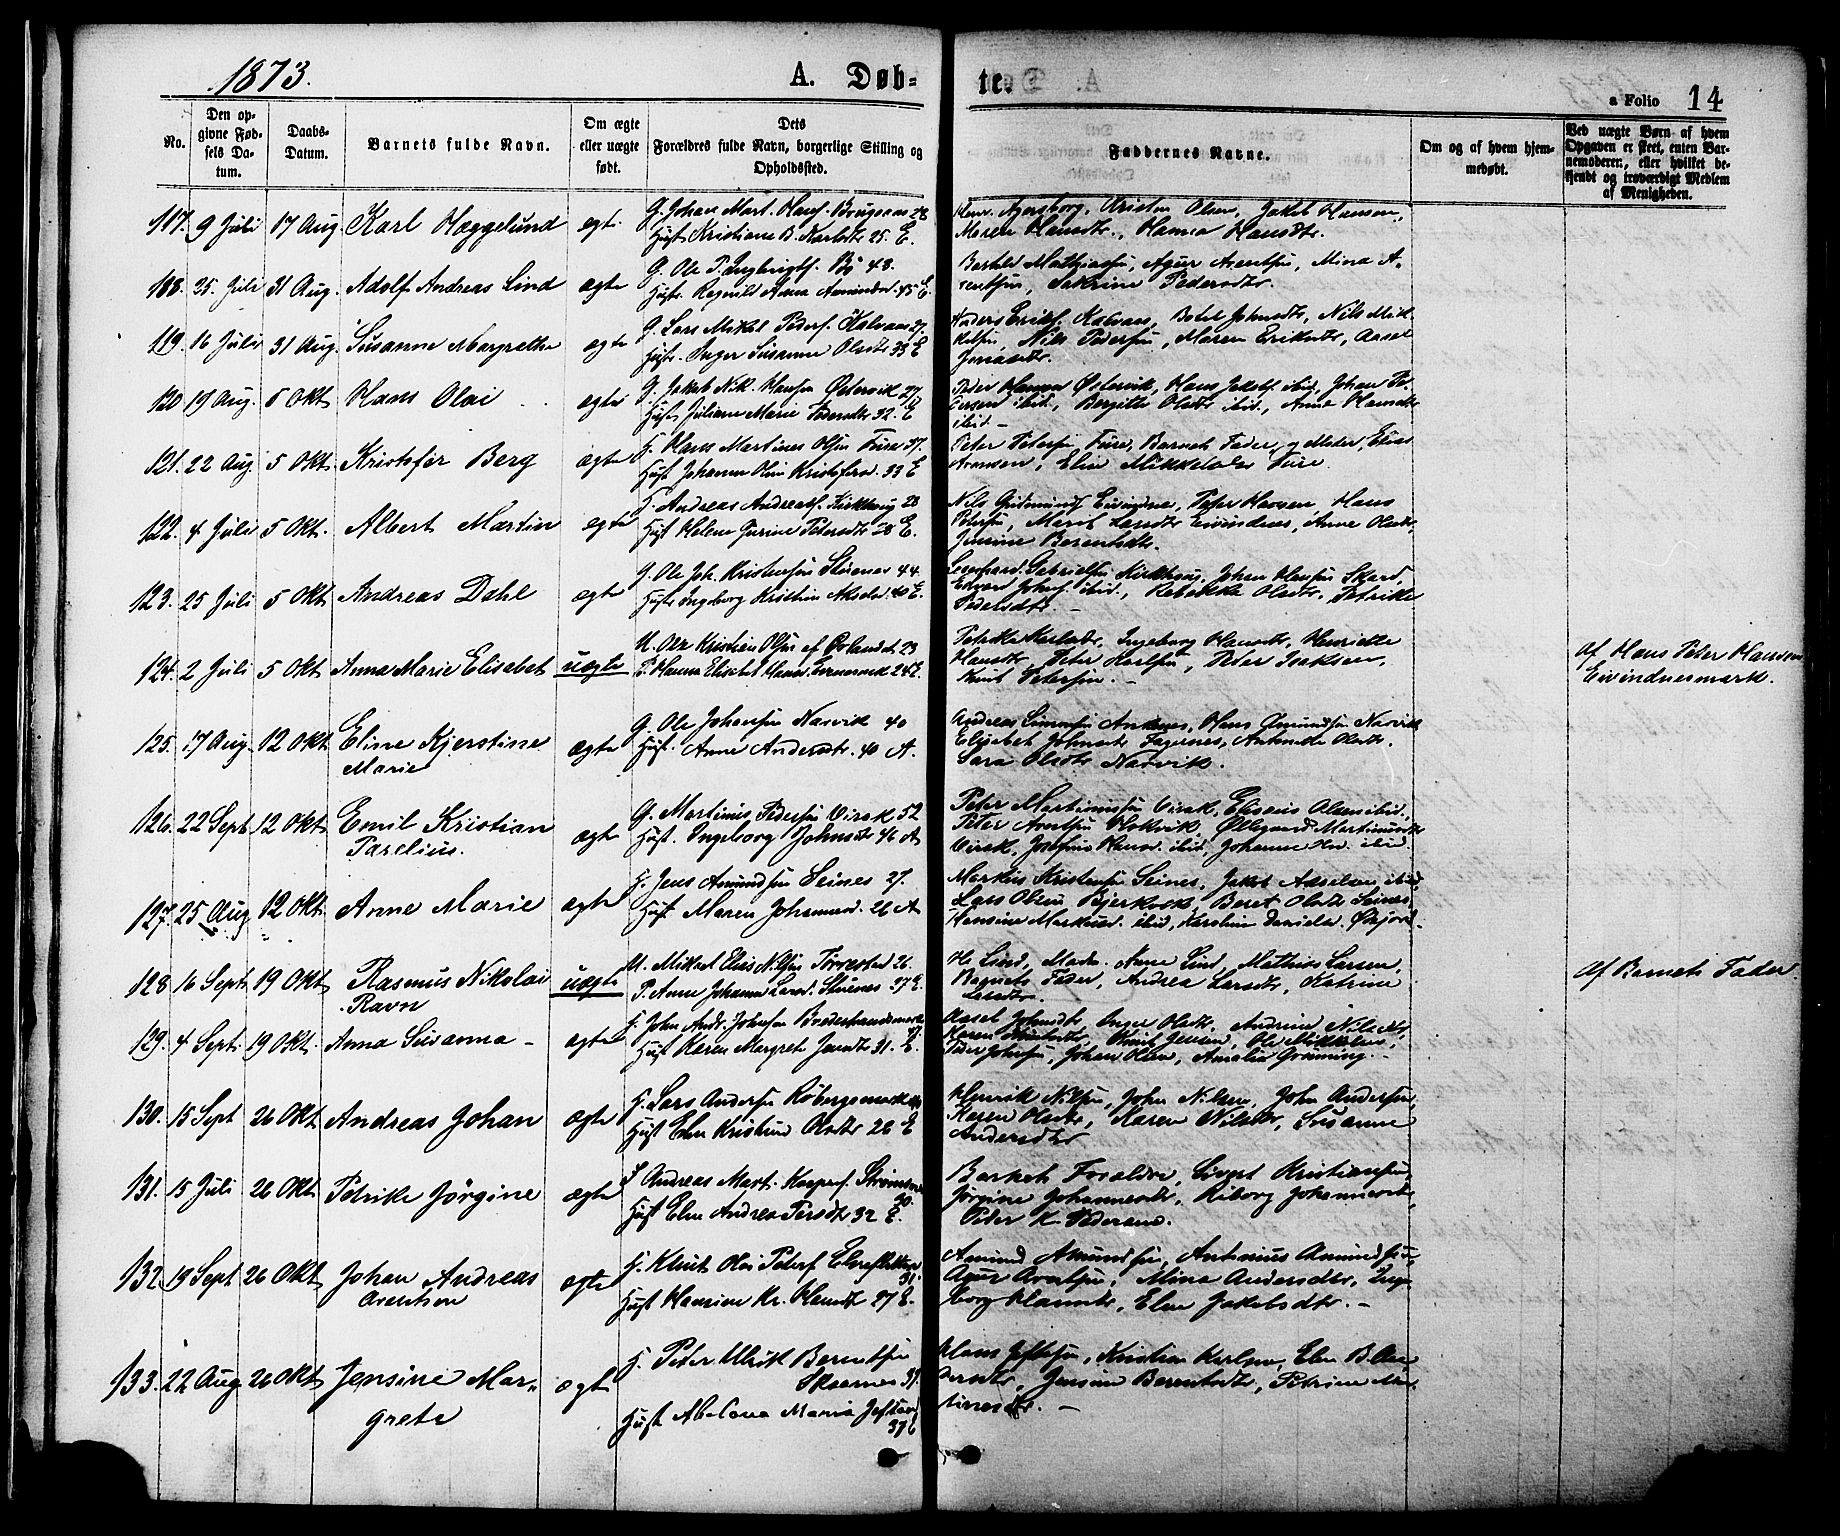 1873.
A. Døb-
te.
a Folio 14
No.
Den op-
givne Fød-
sels Da-
tum.
Daabs-
Datum.
Barnets fulde Navn.
Om ægte
eller uægte
født.
Dets
Forældres fulde Navn, borgerlige Stilling og
Opholdssted.
Faddernes Navne.
Om og af hvem hjem-
medøbt.
Ved uægte Børn af hvem
Opgaven er skeet, enten Bar-
nemoderen, eller hvilket be-
kjendt og troværdigt Medlem
af Menigheden.
117. 9 Juli 17 Aug. Karl Hæggelund ægt.
G. Johan Mart. Hansf. 28
Hust. Kristiane B. Karlsdtr 25. E.
Kristen Olsen, Jakob Hansen,
Maren Hansdtr., Hanna Hansdtr.
118. 25. Juli 31 Aug. Adolf Andreas Lind ægte
G. Ole P. Ingbrigtf. Bø 48.
Hustr. Ragnild Anna 45 E.
Bertel Mathiassen, Agur Arentsen, Mina A-
rentsen, Katrine Pedersdtr.
119. 16 Juli 31 Aug. Susanne Margrethe ægte
G. Lars Mikal Pederf. Kalvaas 27.
Hustr. Inger Susanna Olsdtr 33 E
Anders Erikf. Kalvaas, Botel Johnsdtr, Nils Mik-
kelsen, Nils Pedersen, Maren Eriksdtr, Aasel
Jonasdtr.
120 19 Aug. 5 Okt Hans Olai ægte
G. Jakob Nik. Hansen Østervik 27
Hust Juliane Marie Pedersdtr 32. E
Peder Hansen Østervik, Hans Jakobf. ibid, Johan Pe-
dersen ibid., Bergitte Olsdtr ibid., Anne Hansdtr
ibid –
121. 22 Aug 5 Okt. Kristofer Berg ægte
G. Hans Martines Olsen Fure 37.
Hust Johanna Olina Kristofersd. 33 E
Peter Petersen Fure, Barnets Fader og Moder, Elias
Aronsen, Elen Mikkelsdtr Fure.
122. 4 Juli 5 Okt. Albert Martin ægte
G. Andreas Andreasf. Kirkhaug 28
Hust Helene Gurine Petersdtr 28 E.
Nils Gudmundf. Eivindnes, Peter Hansen, Hans
Petersen, Marit Larsdtr Eivindnes, Anne Olsdtr,
Jensine Berentsdtr.
123. 25 Juli 5 Okt Andreas Dahl ægte
G. Ole Joh. Kristensen Stuenes 44.
Hustr Ingeborg Kristina Akselsd. 40 E.
Leonhard Gabrielsen Kirkhaug, Johan Hansen Skard,
Edvard Johnf. ibid., Rebekka Olsdtr, Petrike
Pedersdtr. –
124. 2 Juli 5 Okt Anna Marie Elisabet uægte
U. Ole Kristian Olsen af Ørlandet 23
P. Hanna Elisabet Hansd. 24 E.
Petrikke Karlsdtr, Ingeborg Hansdtr, Henriette
Hansdtr, Peter Karlsen, Peter Isaksen,
Knut Petersen. –
Af Hans Peter Hansen
Eivindnesmark.
125. 17 Aug. 12 Okt Eline Kjerstine ægte
Marie
G. Ole Johansen Narvik 40
Hust. Anne Andersdtr. 40 A.
Andreas Simonsen Ankenes, Hans Amundsen Narvik
Elisabet Johnsdtr Fagernes, Antonette Olsdtr.
Sara Olsdtr Narvik.
126. 22 Sept 12 Okt Emil Kristian ægte
Parelius.
G. Martinus Pedersen Virak 52
Hust. Ingeborg Johnsdtr 46 A
Peter Martinussen Virak, Eliseus Olsen ibid.,
Peter Arntsen, Øllegaard Martinusdtr
Virak, Josefine Hansd. ibid, Johanna ibid
127. 25 Aug 12 Okt. Anne Marie ægte
G. Jens Amundsen Seines 27.
Hust Maren Johannesd. 26 A
Markus Kristensen Seines, Jakob Axelsen ibid,
Lars Olsen Bjerkvik, Beret Olsdtr Seines,
Hansine Markusd. ibid, Karoline Danielsd.
128 16 Sept. 19 Okt Rasmus Nikolai uægte
Ravn
U. Mikael Elias Nilsen Torrestad 26.
P. Anne Johanna Larsd. Stuenes 37 E.
H. Lind, Mada. Anne Lind, Mathias Larsen,
Barnets Fader, Andrea Larsdtr, Katrine
Larsdtr.
Af Barnets Fader
129. 4 Sept. 19 Okt. Anna Susanna – ægte
G. John Andr. Johnsen
Hust Karen Margrete 31. E.
Aasel Johnsdtr, Inger Olsdtr, Andrine Nilsdtr,
Karen Knutsdtr, Knut Jensen, Ole Mikkelsen,
Peder Johnsen, Johan Olsen, Amalia Grønning. –
130. 15 Sept 26 Okt Andreas Johan ægte
G. Lars Andersen
Hust Elen Kristine Olsdtr 26 E
Henrik Nilsen, John Nilsen, John Andersen,
Karen Olsdtr, Karen Nilsdtr, Susanne
Andersdtr
131. 15 Juli 26 Okt Petrike Jørgine ægte
G. Andreas Mart. Kasperf.
30.
Hust Elen Andrea Persdtr 32 E.
Barnets Foreldre, Sivert Kristiansen,
Jørgine Johannesdtr, Riborg Johannesdtr,
Peder K. Pedersen.
132 19 Sept 26 Okt Johan Andreas ægte
Arentsen
G. Knut Olai Pederf.
31.
Hust Hansine Kr. 27 E.
Amund Amundsen, Antonius Amundsen
Agur Arentsen, Mina Andersdtr, Inge-
borg Hansdtr, Elen Jakobsdtr. –
133. 22 Aug 26 Okt Jensine Mar- ægte
grete
G. Peter Ulrik Berentsen
Skoernes 39.
Hust Abelona Maria
37 E
Hans Jeftesen, Kristian Karlsen, Elen B. An-
dersdtr, Jensine Berentsdtr, Petrine Mar-
tinesdtr. –